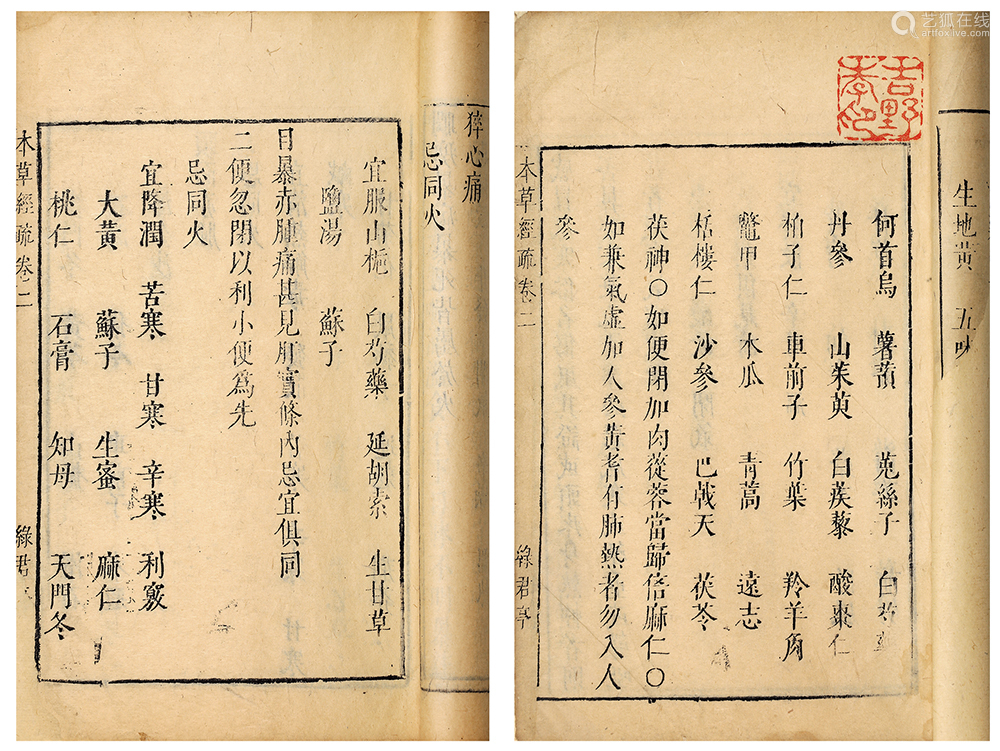 艺狐在线
artfoxlive.com
吉野
生地黃 五味
何首烏 薯蕷 菟絲子 白芍
丹參 山茱萸 白蒺藜 酸棗仁
柏子仁 車前子 竹葉 羚羊角
鼈甲 木瓜 青蒿 遠志
栝樓仁 沙參 巴戟天 茯苓
茯神○如便閉加肉蓯蓉當歸倍麻仁○
如兼氣虛加人參黃耆有肺熱者勿入人
參
本草經疏卷二
綠君亭
猝心痛
忌同火
宜服山梔 白芍藥 延胡索 生甘草
鹽湯 蘇子
目暴赤腫痛甚見肝實條內忌宜俱同
二便忽閉以利小便爲先
忌同火
宜降潤 苦寒 甘寒 辛寒 利竅
大黃 蘇子 生蜜 麻仁
桃仁 石膏 知母 天門冬
本草經疏卷二
綠君